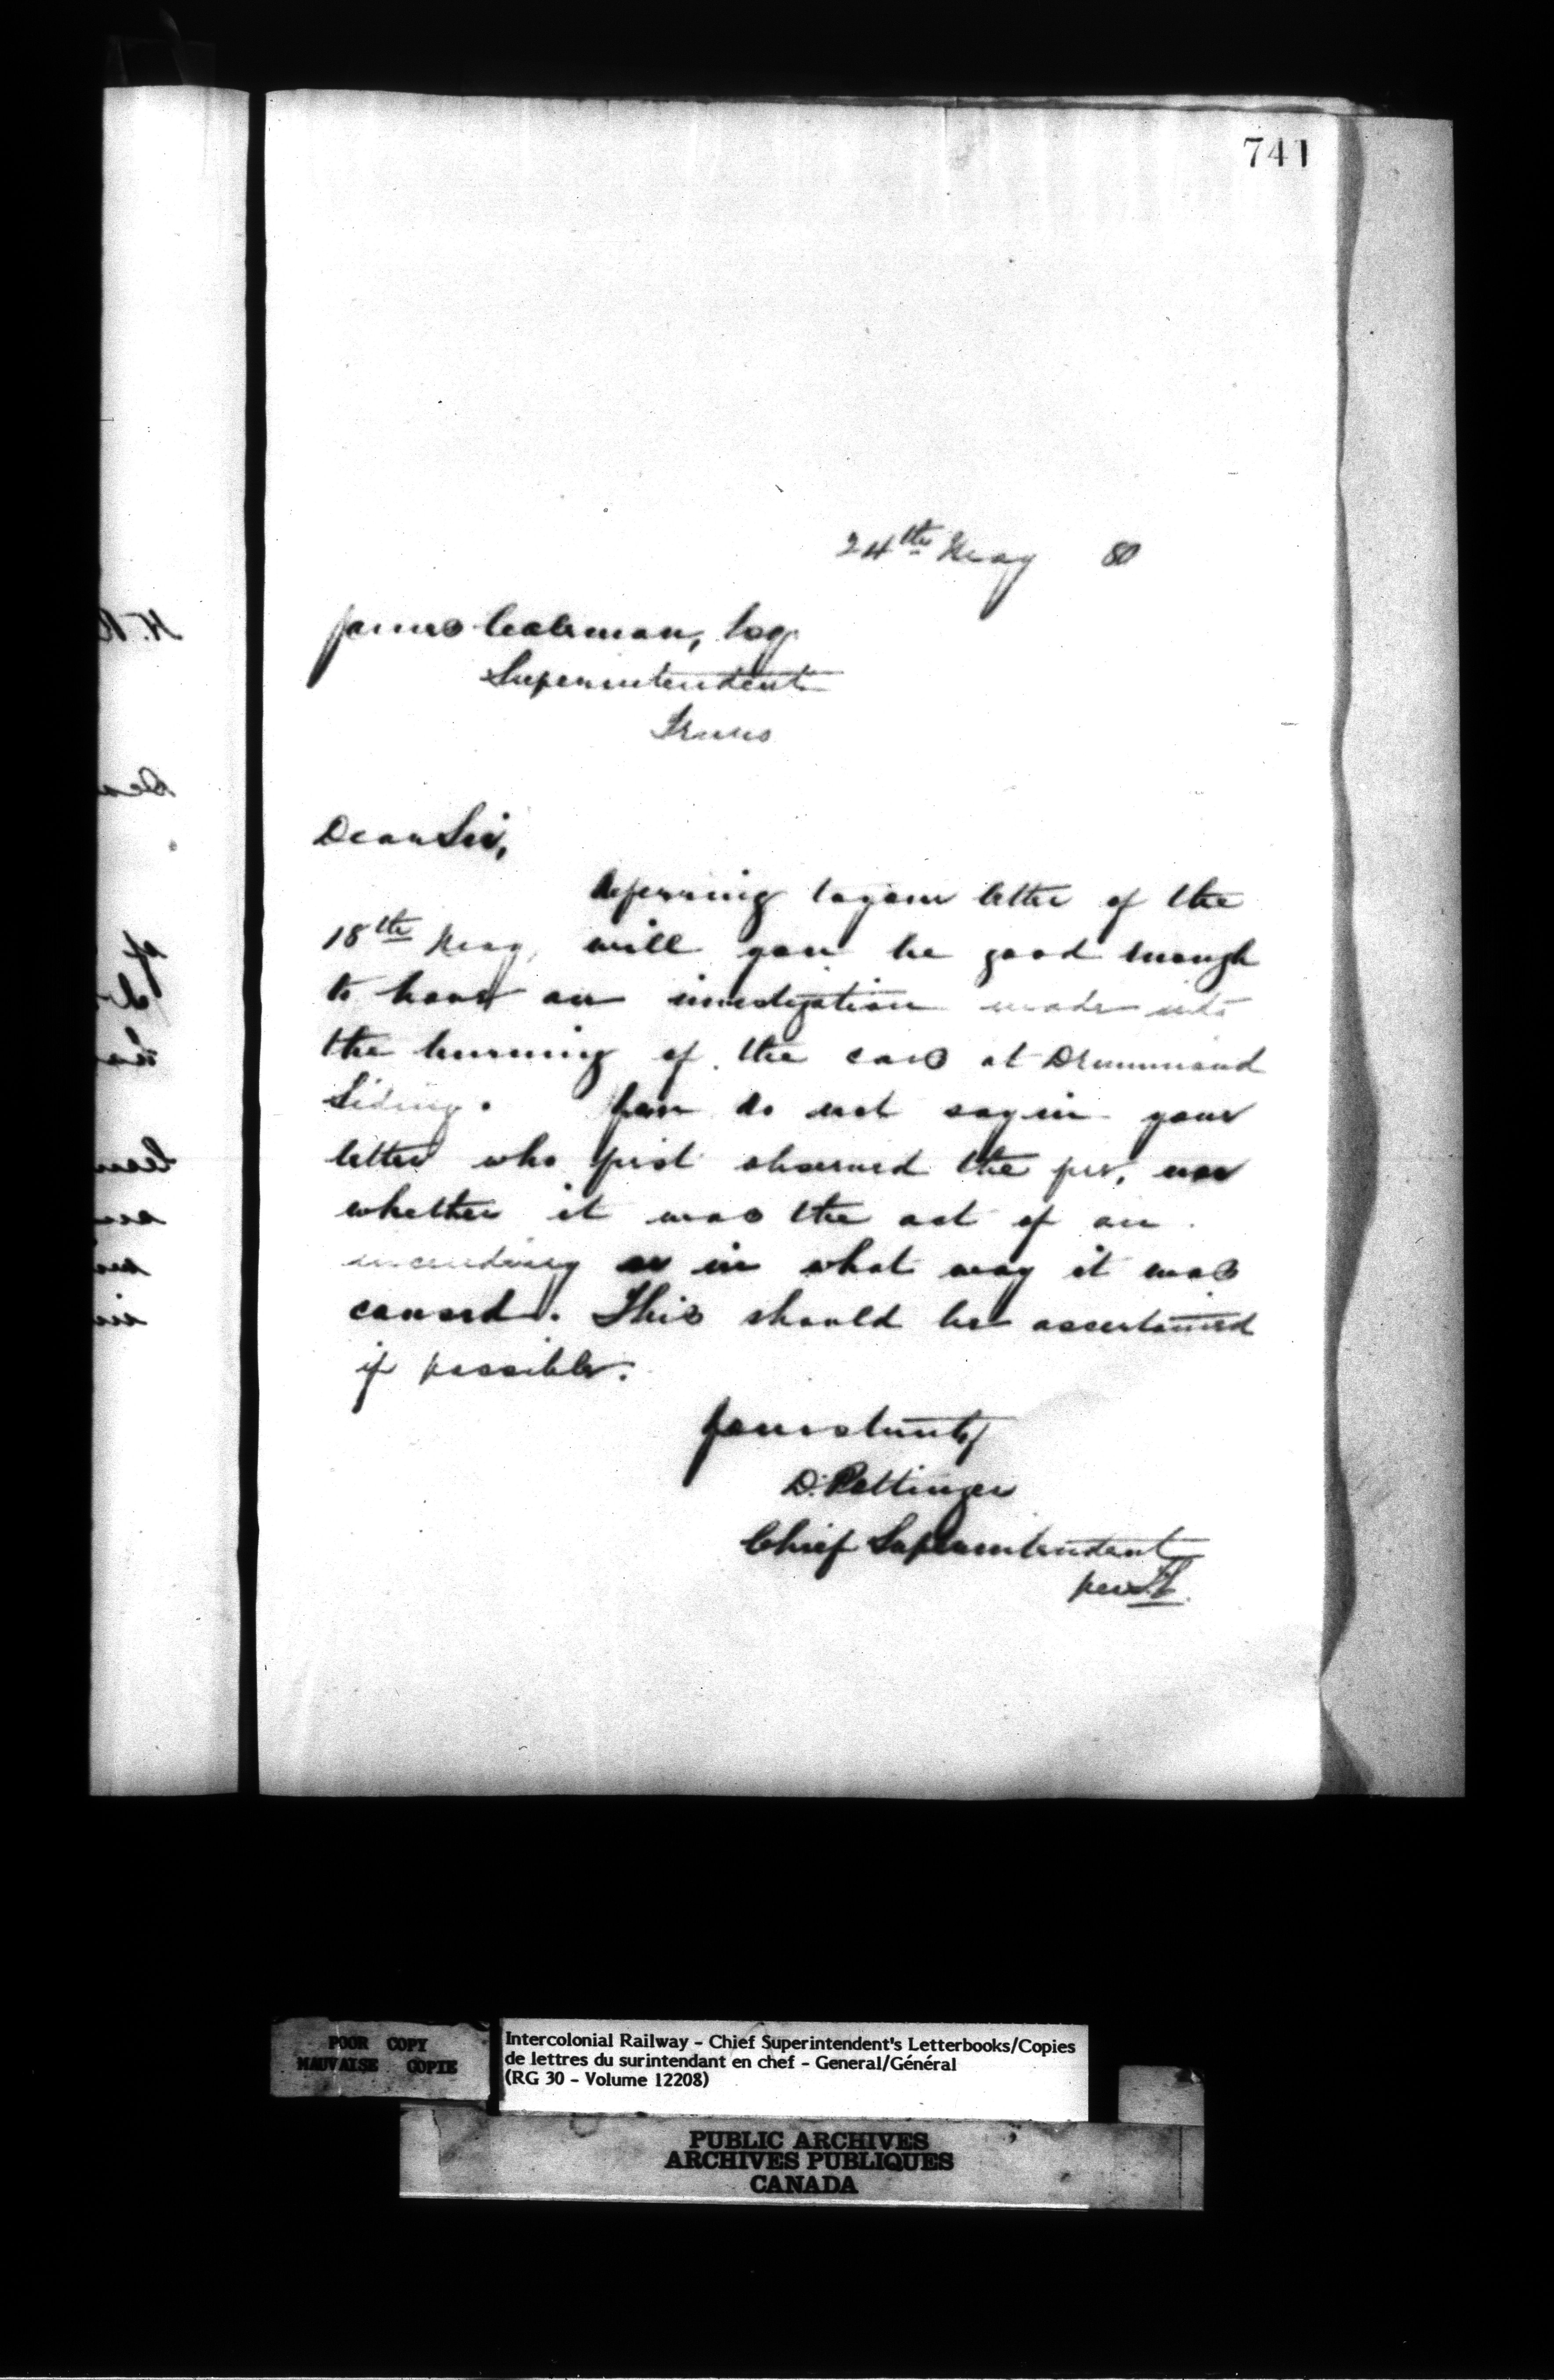 741
24th May 80
James Coleman, Esq.
Superintendent
Truro
Dear Sir,
Referring to your letter of the
18th May, will you be good enough
to have an investigation made into
the burning of the cars at Drummond
Siding. You do not say in your
letter who first observed the fire, nor
whether it was the act of an
incendiary or in what way it was
caused. This should be ascertained
if possible.
Yours truly
D. Pottinger
Chief Superintendent
per
POOR COPY
MAUVAISE COPIE
Intercolonial Railway - Chief Superintendent's Letterbooks/Copies
de lettres du surintendant en chef - General/Général
(RG 30 - Volume 12208)
PUBLIC ARCHIVES
ARCHIVES PUBLIQUES
CANADA